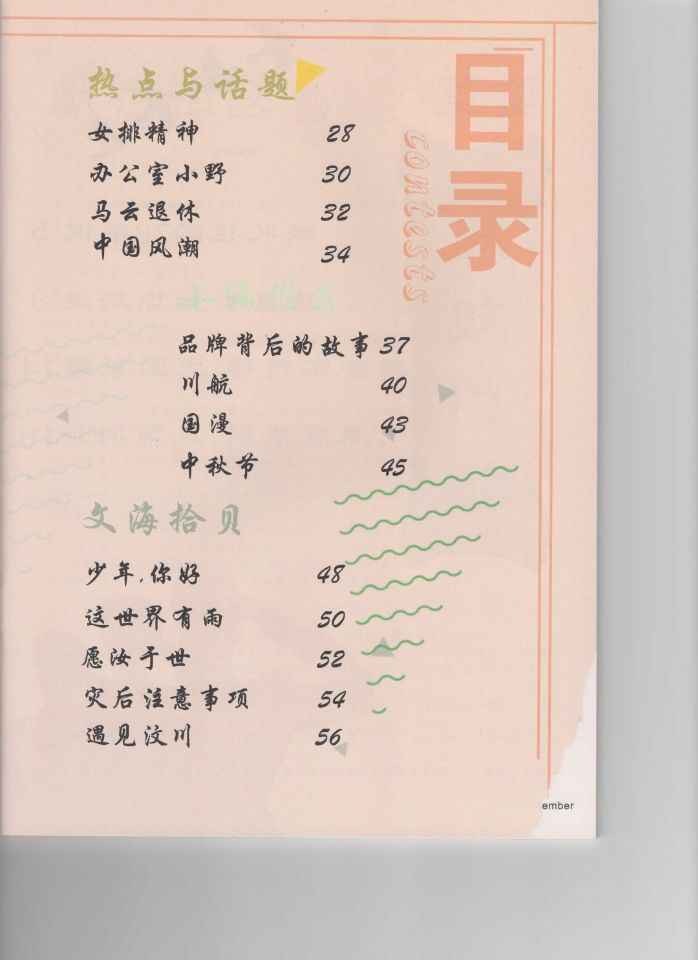 目录
contests
热点与话题
女排精神 28
办公室小野 30
马云退休 32
中国风潮 34
小编推荐
品牌背后的故事 37
川航 40
国漫 43
中秋节 45
文海拾贝
少年,你好 48
这世界有雨 50
愿汝于世 52
灾后注意事项 54
遇见汶川 56
ember